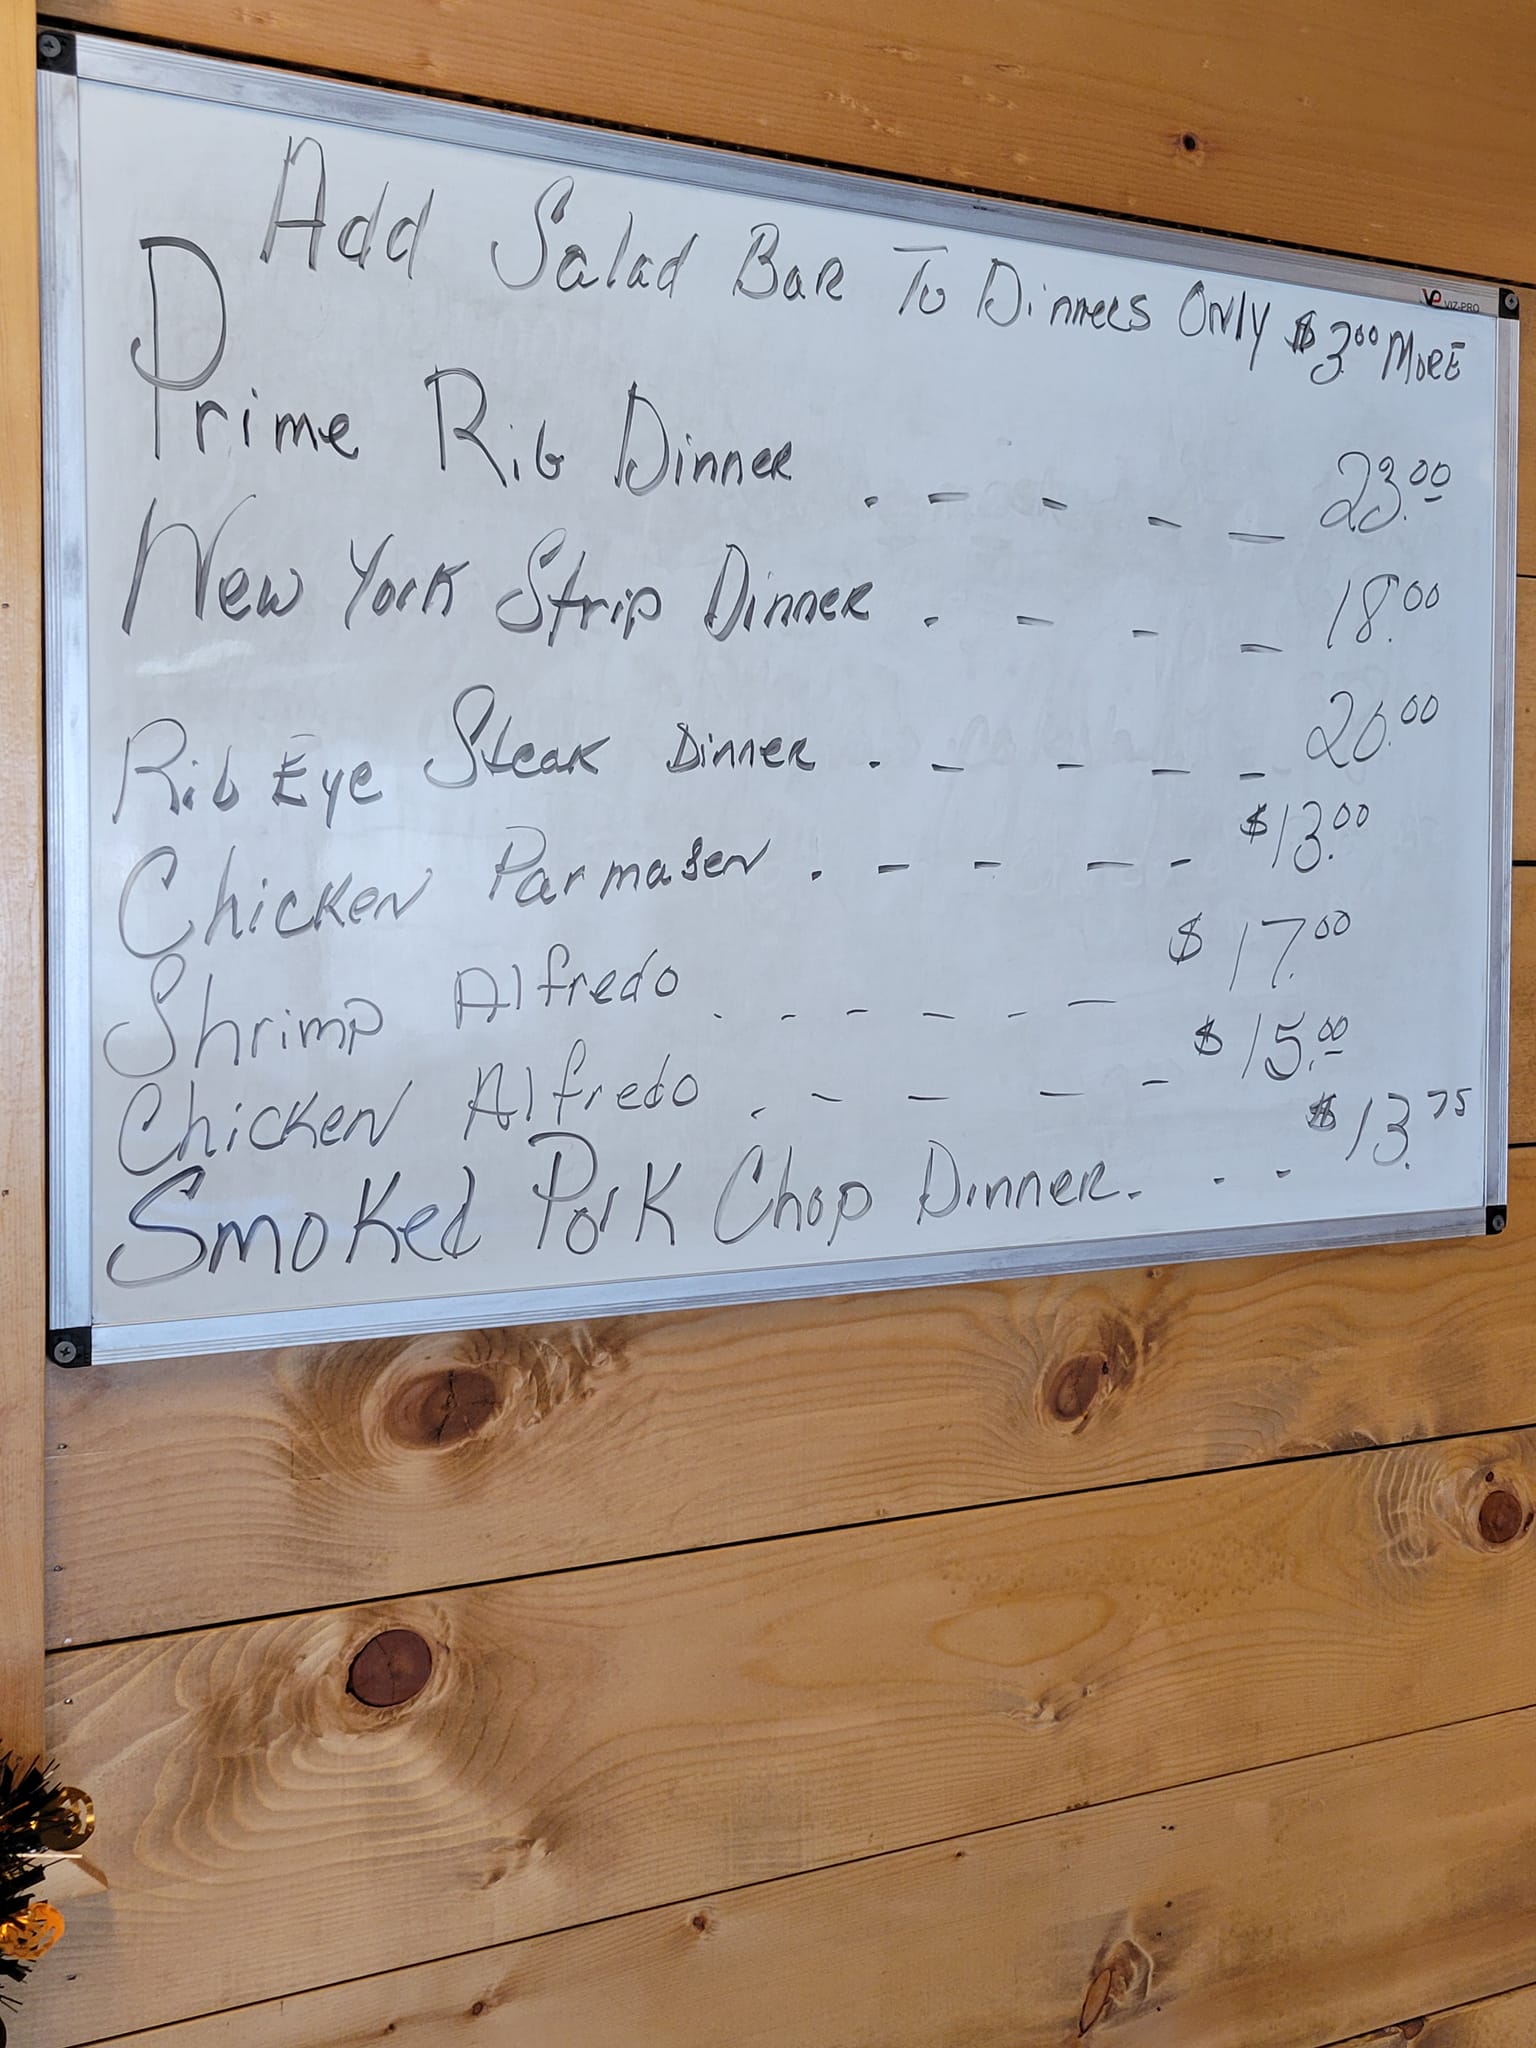 Add Salad Bar To Dinners Only $3.00 More
VP VIZ-PRO
Prime Rib Dinner . - - - - 23.00
New York Strip Dinner . - - - 18.00
Rib Eye Steak Dinner . - - - - 20.00
Chicken Parmasen . - - - - $13.00
Shrimp Alfredo . - - - - - $17.00
Chicken Alfredo . - - - - $15.00
Smoked Pork Chop Dinner . - - $13.75